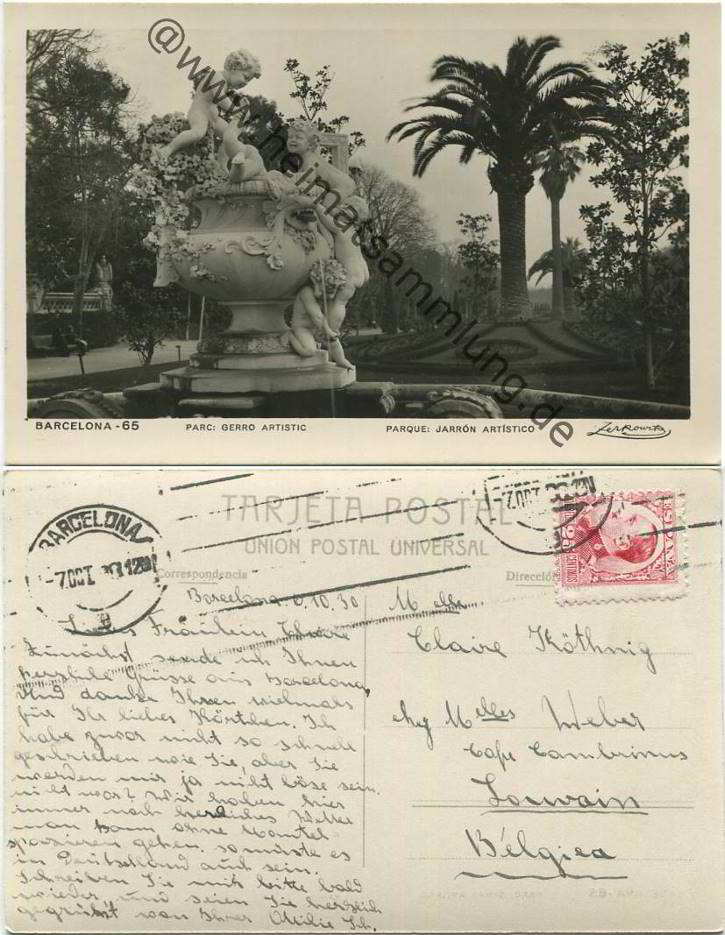 @www.heimatsammlung.de
BARCELONA - 65 PARC: GERRO ARTISTIC PARQUE: JARRÓN ARTÍSTICO Zerkowitz
TARJETA POSTAL
UNION POSTAL UNIVERSAL
BARCELONA
-7.OCT
Correspondencia
Dirección
Barcelona 6.10.30
Liebes Fräulein Claire
Zunächst sende ich Ihnen
herzliche Grüsse aus Barcelona,
und danke Ihnen vielmals
für Ihr liebes Kärtchen. Ich
habe zwar nicht so schnell
geschrieben wie Sie, aber Sie
werden mir ja nicht böse sein.
nicht wahr? Wir haben hier
immer noch herrliches Wetter
man kann ohne Mantel
spazieren gehen. so müsste es
in Deutschland auch sein.
Schreiben Sie mir bitte bald
wieder, und seien Sie herzlich
gegrüsst von Ihrer Otilie Sch.
Melle
Claire Köthnig
chez Melles Weber
Cafe Cambrinus
Louvain
Bélgica